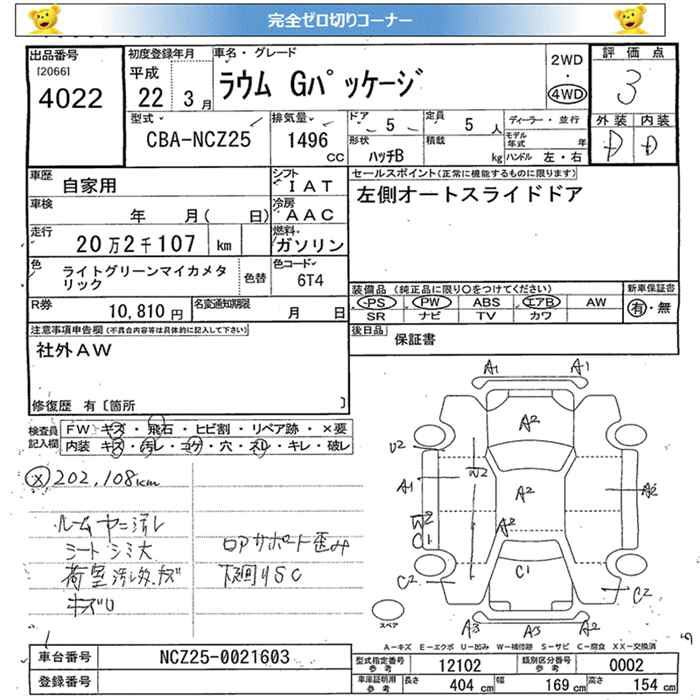 完全ゼロ切りコーナー
出品番号 初度登録年月 車名・グレード 評価点
[2066] 平成 ラウム Gパッケージ 2WD
4022 22 3月 ・ 3
4WD
型式 排気量 ドア 5 定員 5 人 ディーラー・並行 外装 内装
CBA-NCZ25 1496 CC 形状 ハッチB 積載 kg モデル年式 年 D D
ハンドル 左・右
車歴 自家用 シフト IAT セールスポイント(正常に機能するものに限ります)
車検 年 月( 日) 冷房 AAC 左側オートスライドドア
走行 20万2千107 km 燃料 ガソリン
色 ライトグリーンマイカメタリック 色替 色コード 6T4
装備品 (純正品に限り○をつけてください) 新車保証書
R券 10,810円 名変通知期限 月 日 PS PW ABS エアB AW 有・無
SR ナビ TV カワ
注意事項申告欄(不具合内容等は具体的に記入して下さい) 後日品 保証書
社外AW
修復歴 有〔箇所 〕
検査員記入欄 FW キズ・飛石・ヒビ割・リペア跡・×要
内装 キズ・汚レ・コゲ・穴・スレ・キレ・破レ
202,108km
ルームヤニ汚レ
シートシミ大 ロアサポート歪み
荷室汚レ 下廻りSC
キズU
A1 A1
A2
U2
W2
A1 A2 A2
W2
C1 A2
C1
C2 C2
A3 A3 A2
スペア
A-キズ E-エクボ U-凹み W-補修跡 S-サビ C-腐食 XX-交換済
車台番号 NCZ25-0021603 型式指定番号 参考 12102 類別区分番号 参考 0002
登録番号 車庫証明用 参考 長さ 404 cm 幅 169 cm 高さ 154 cm